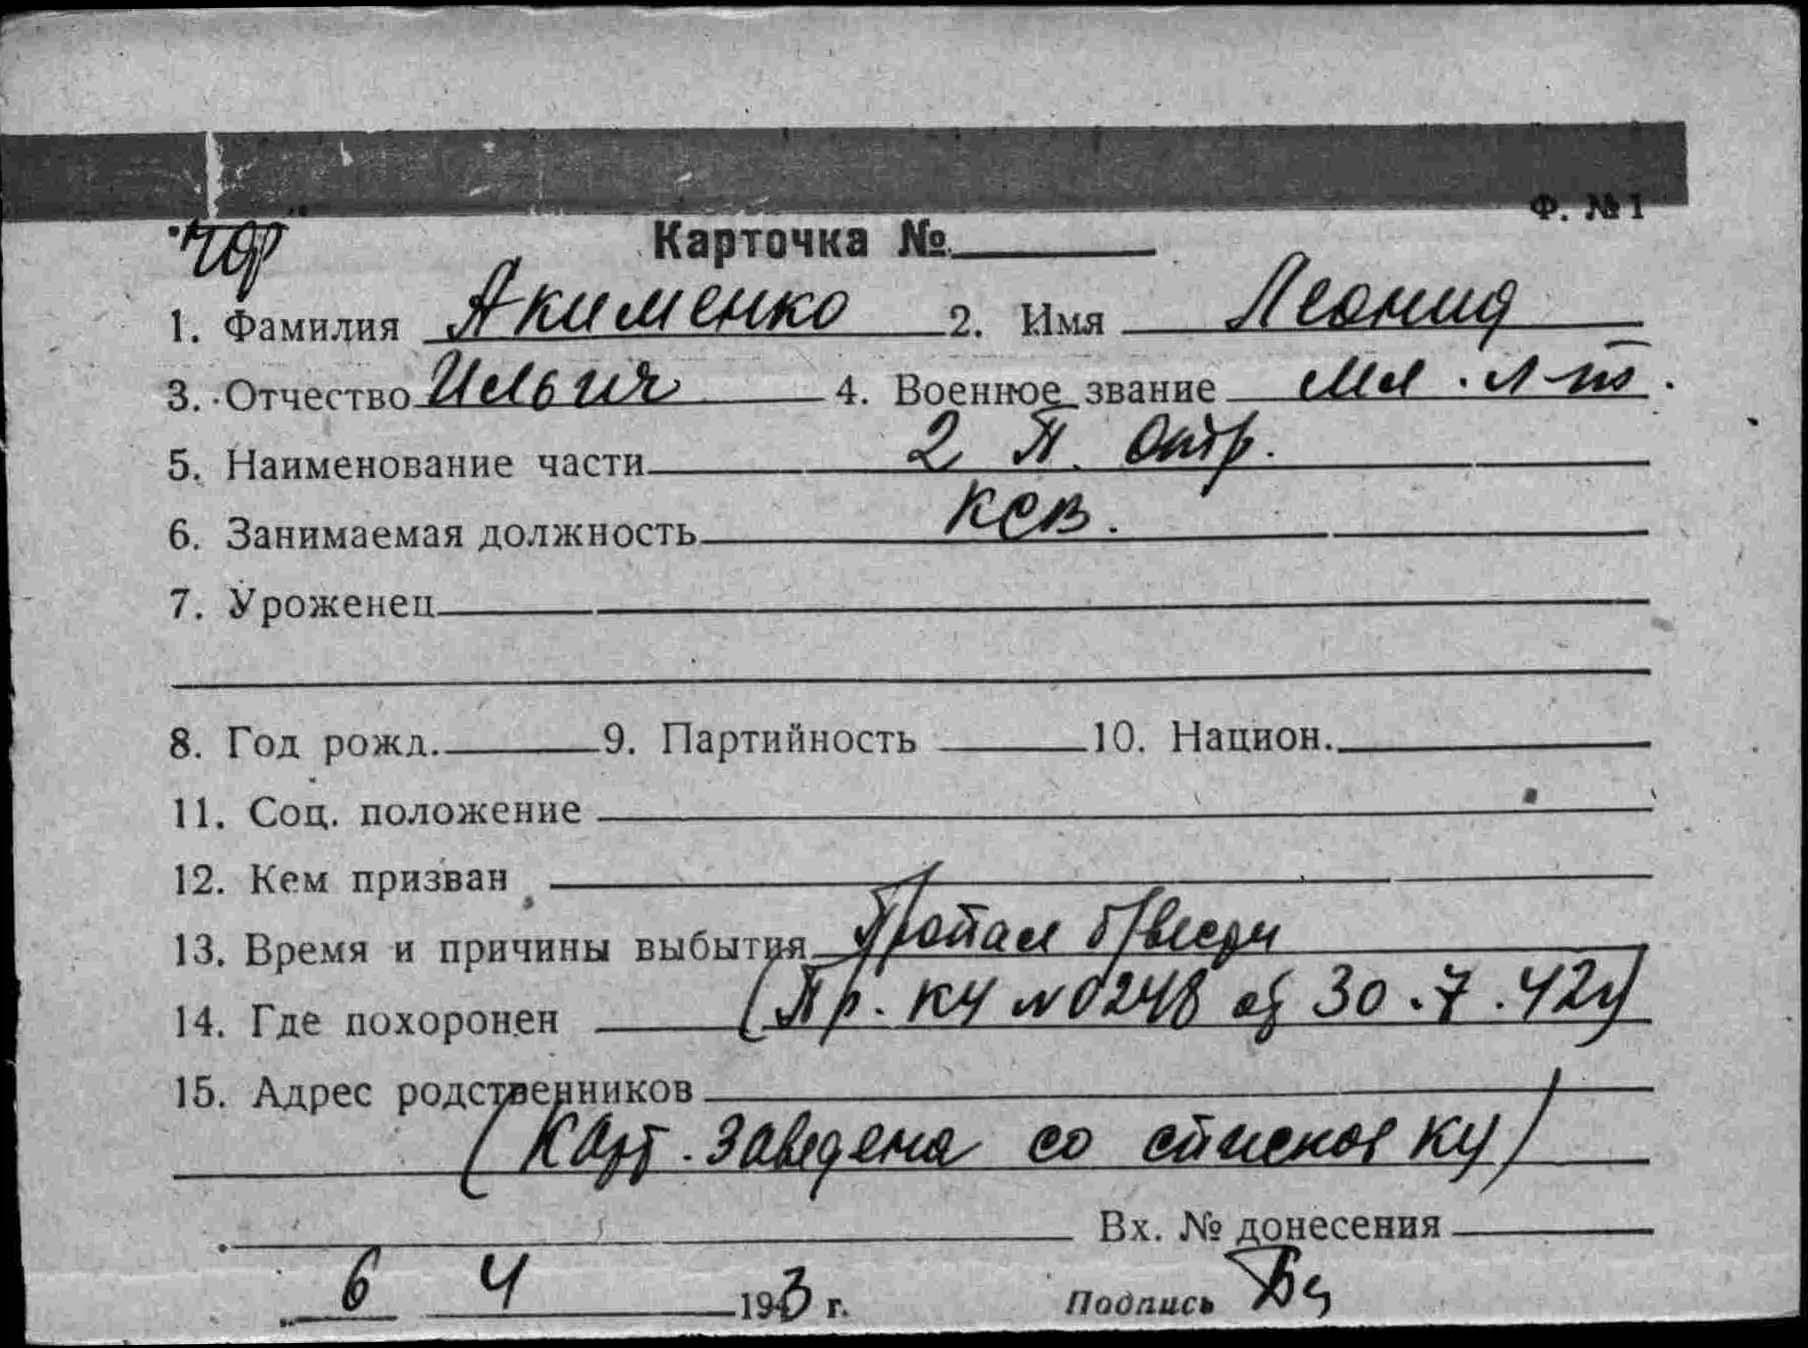 Ф. №1
Карточка №
1. Фамилия Акименко 2. Имя Леонид
3. Отчество Ильич 4. Военное звание Мл. л-т.
5. Наименование части 2 П. отр.
6. Занимаемая должность КСВ.
7. Уроженец
8. Год рожд. 9. Партийность 10. Национ.
11. Соц. положение
12. Кем призван
13. Время и причины выбытия Пропал б/вести
14. Где похоронен (Пр. КЧ №0248 от 30.7.42г)
15. Адрес родственников
(Карт. заведена со списков КЧ)
Вх. № донесения
6 4 1943 г. Подпись